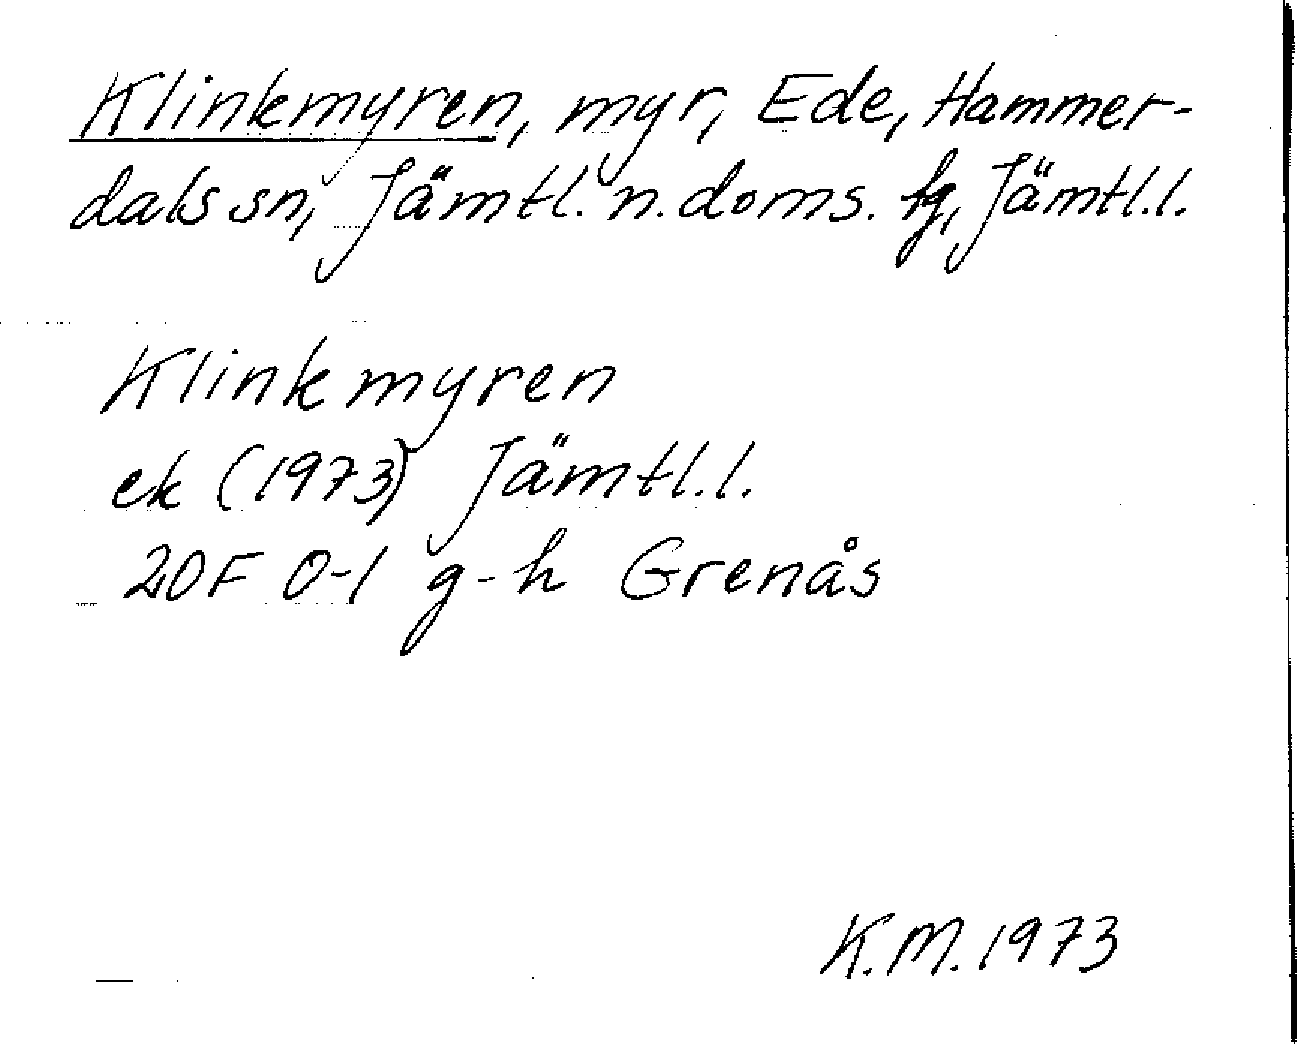 Klinkmyren, myr, Ede, Hammer-
dals sn, Jämtl. n. doms. fg, Jämtl.l.
Klinkmyren
ek (1973) Jämtl.l.
20F 0-1 g-h Grenås
K.M. 1973